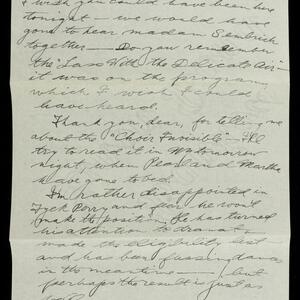 I wish you could have been here
tonight — we would have
gone to hear madam Sembrich
together — Do you remember
the "Lass With the Delicate Air" —
it was on the program
which I wish I could
have heard.
Thank you, dear, for telling me
about the "Choir Invisible" — I'll
try to read it tomorrow
night, when Pearl and Martha
have gone to bed.
I'm rather disappointed in
Perry and fear he won't
make the position. He has turned
his attention to dramat
made the eligibility list
and has been fussing
in the meantime — but
perhaps the result is just as